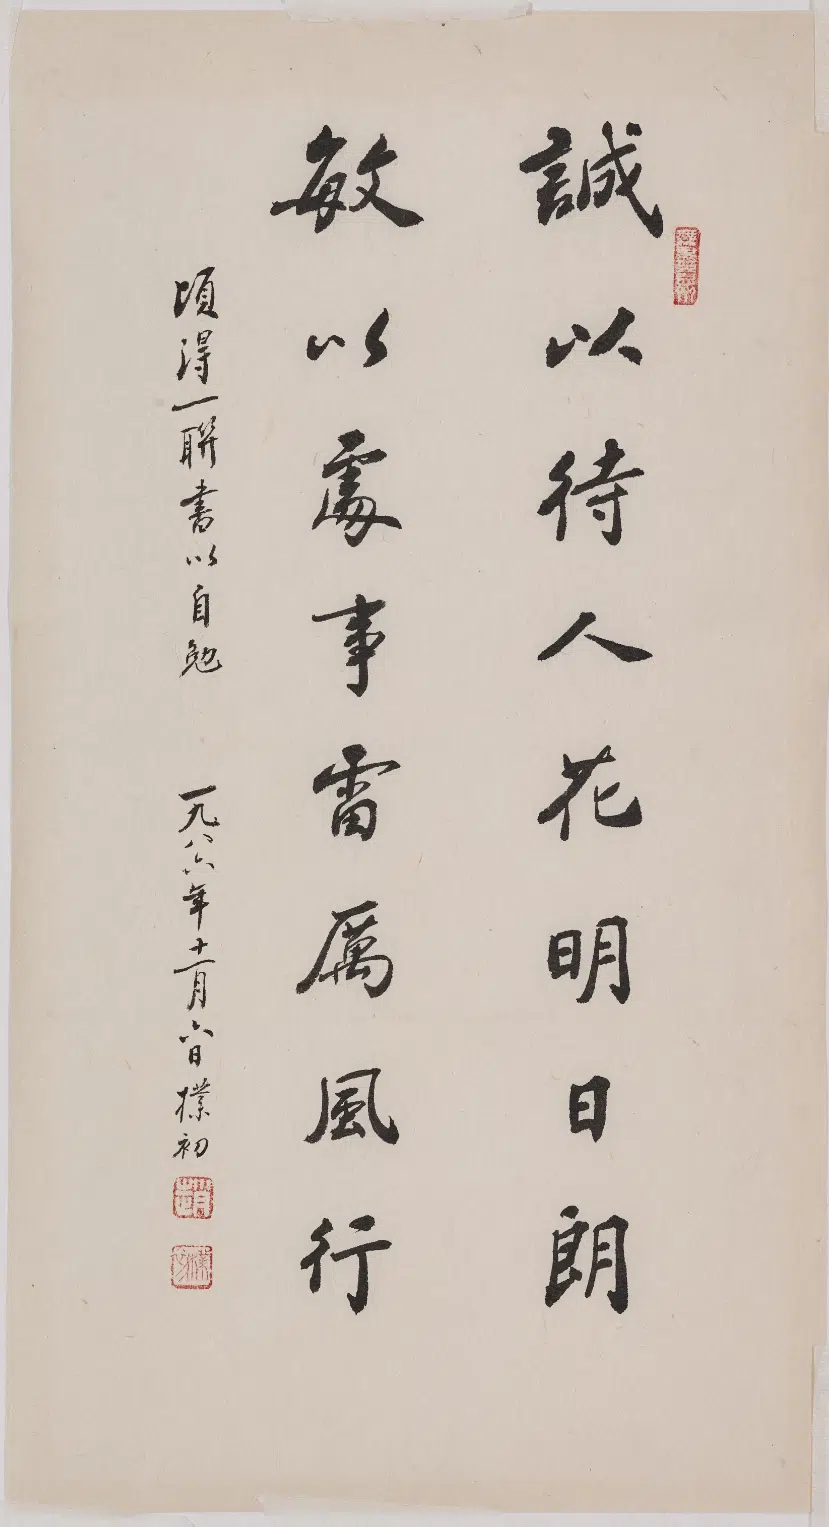 誠以待人花明日朗
敏以處事雷厲風行
頃得一聯書以自勉 一九八六年十一月六日樸初
趙
樸初